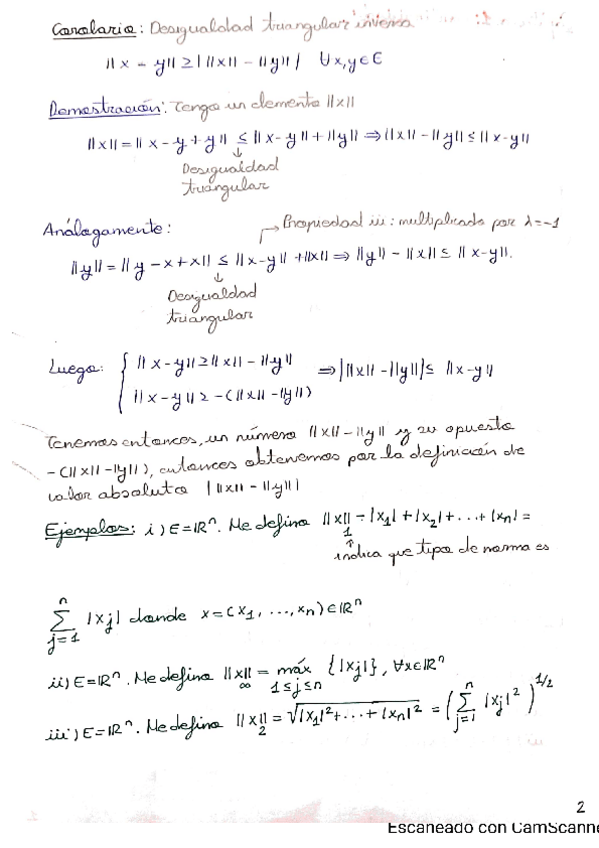 Corolario: Desigualdad triangular inversa
||x - y|| ≥ | ||x|| - ||y|| | ∀x,y ∈ E
Demostración: Tengo un elemento ||x||
||x|| = ||x - y + y|| ≤ ||x - y|| + ||y|| ⇒ ||x|| - ||y|| ≤ ||x - y||
↓
Desigualdad
triangular
Análogamente:
→ Propiedad iii: multiplicado por λ=-1
||y|| = ||y - x + x|| ≤ ||x - y|| + ||x|| ⇒ ||y|| - ||x|| ≤ ||x - y||.
↓
Desigualdad
triangular
Luego: { ||x - y|| ≥ ||x|| - ||y||
||x - y|| ≥ -(||x|| - ||y||)
⇒ | ||x|| - ||y|| | ≤ ||x - y||
Tenemos entonces, un número ||x|| - ||y|| y su opuesto
-(||x|| - ||y||), entonces obtenemos por la definición de
valor absoluto | ||x|| - ||y|| |
Ejemplos: i) E = ℝⁿ. Me defino ||x||₁ = |x₁| + |x₂| + ... + |xₙ| =
↑
indica que tipo de norma es
∑ⁿⱼ₌₁ |xⱼ| donde x = (x₁, ..., xₙ) ∈ ℝⁿ
ii) E = ℝⁿ. Me defino ||x||∞ = máx 1≤j≤n {|xⱼ|}, ∀x∈ℝⁿ
iii) E = ℝⁿ. Me defino ||x||₂ = √|x₁|² + ... + |xₙ|² = (∑ⁿⱼ₌₁ |xⱼ|²)^1/2
2
Escaneado con CamScanne